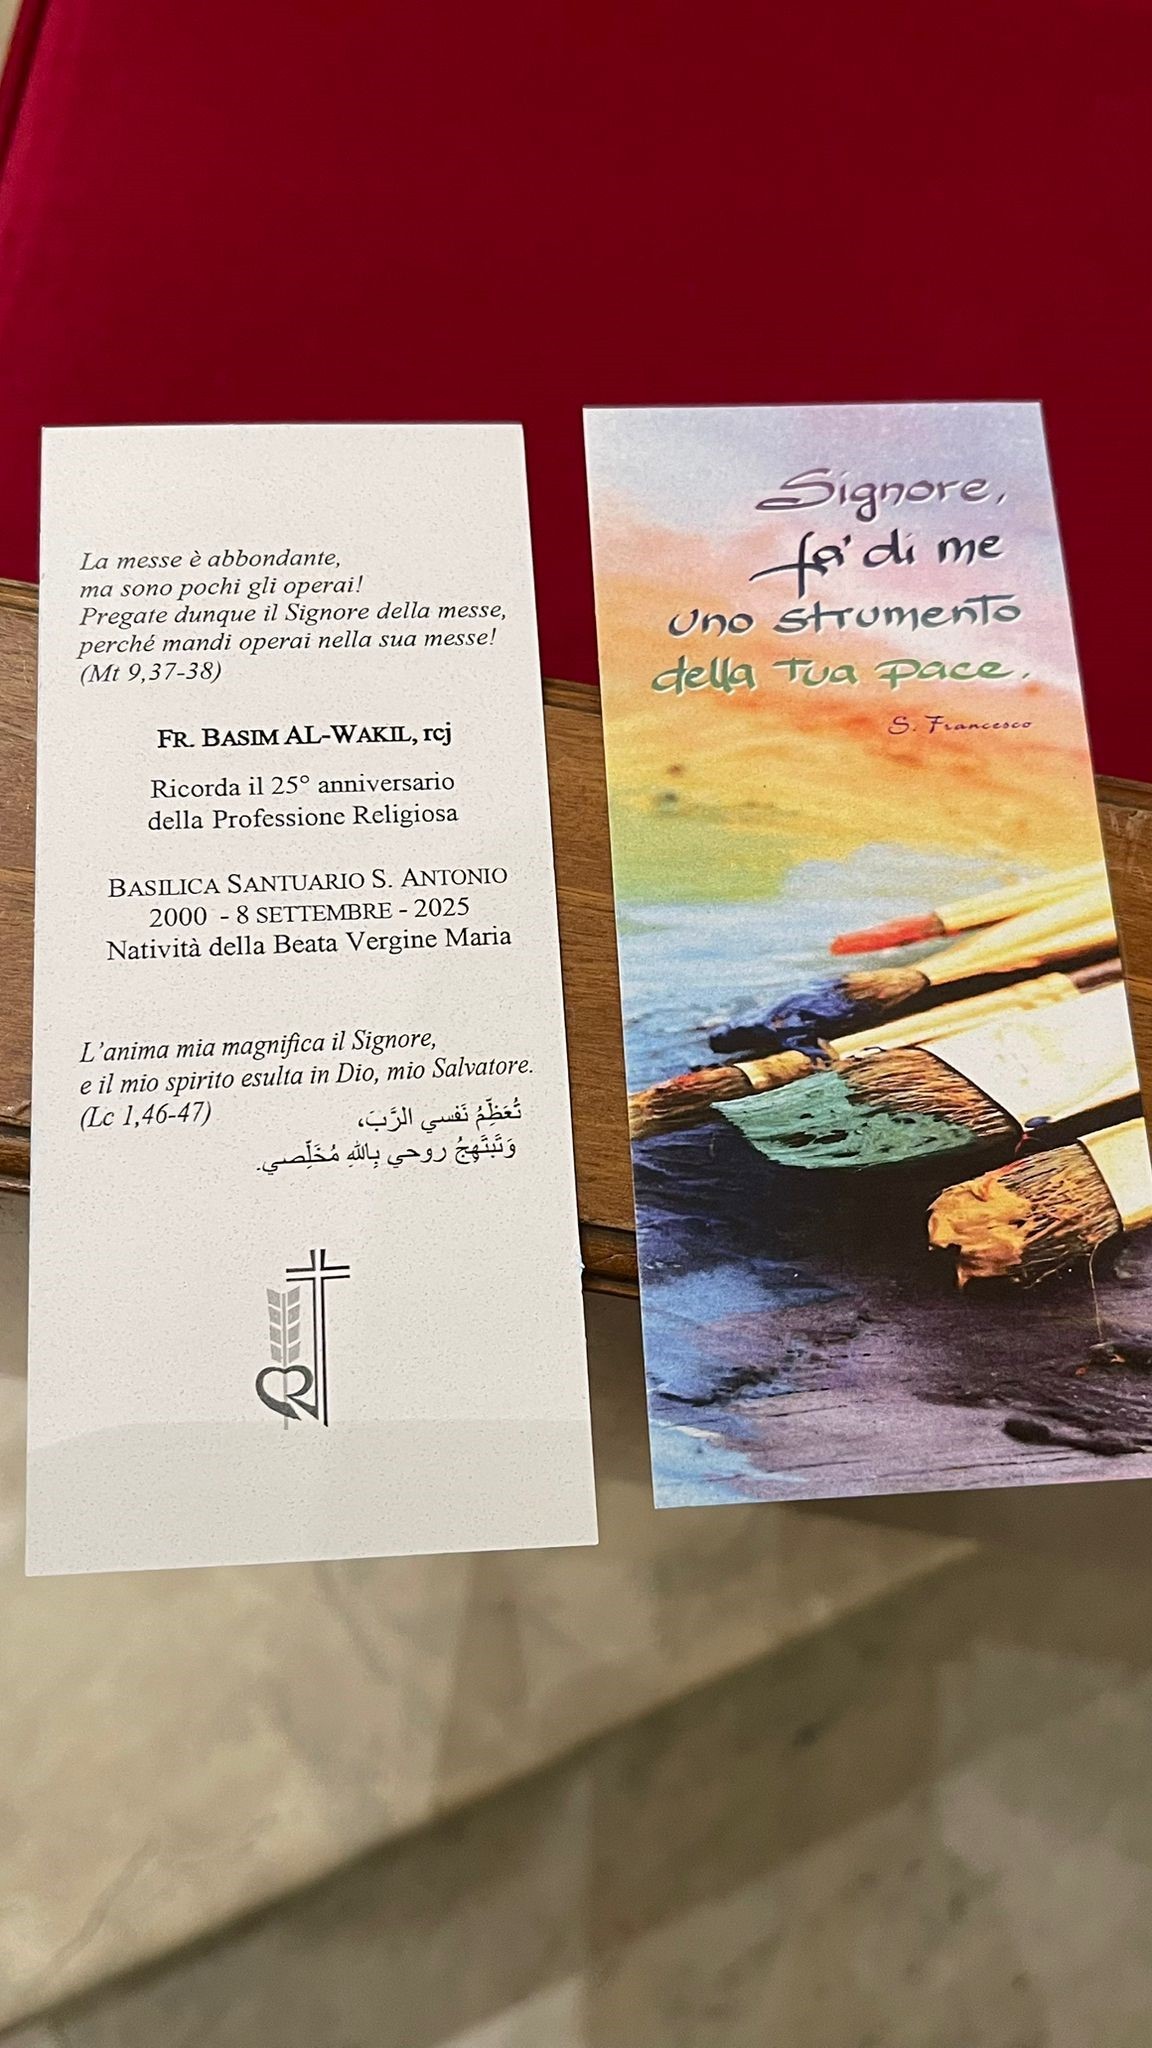 La messe è abbondante,
ma sono pochi gli operai!
Pregate dunque il Signore della messe,
perché mandi operai nella sua messe!
(Mt 9,37-38)
FR. BASIM AL-WAKIL, rcj
Ricorda il 25° anniversario
della Professione Religiosa
BASILICA SANTUARIO S. ANTONIO
2000 - 8 SETTEMBRE - 2025
Natività della Beata Vergine Maria
L'anima mia magnifica il Signore,
e il mio spirito esulta in Dio, mio Salvatore.
(Lc 1,46-47)
تُعَظِّمُ نَفسي الرَّبَ،
وَتَبتَهِجُ روحي بِاللهِ مُخَلِّصي.
Signore,
fa' di me
uno strumento
della Tua pace.
S. Francesco